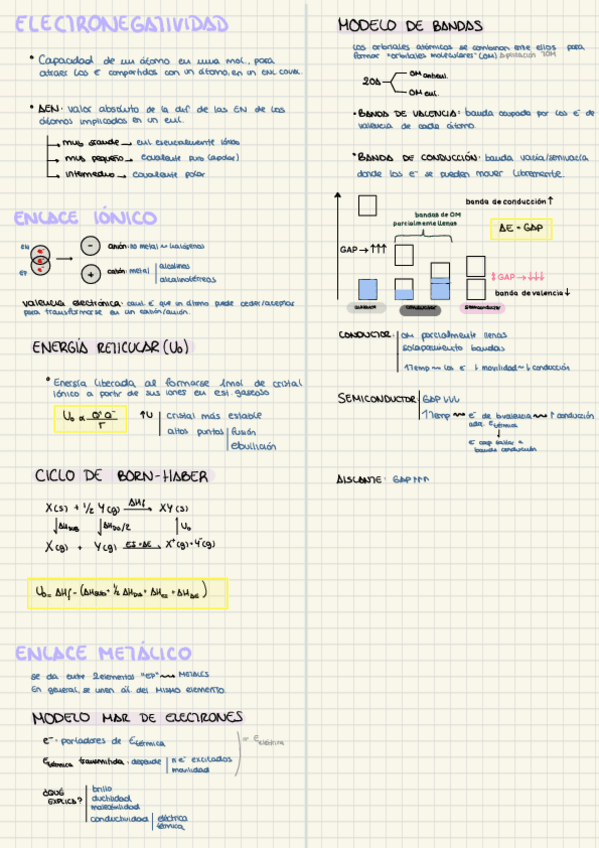 ELECTRONEGATIVIDAD
• Capacidad de un átomo en una mol., para
atraer los e⁻ compartidos con un átomo, en un enl. coval.
• ΔEN: valor absoluto de la dif de las EN de los
átomos implicados en un enl.
muy grande → enl. esencialmente iónico
muy pequeño → covalente puro (apolar)
intermedio → covalente polar
ENLACE IÓNICO
EN
EP
- anión: no metal halógenos
+ catión: metal
alcalinos
alcalinotérreos
valencia electrónica: cant. e⁻ que un átomo puede ceder/aceptar
para transformarse en un catión/anión.
ENERGÍA RETICULAR (U₀)
• Energía liberada al formarse 1mol de cristal
iónico a partir de sus iones en est. gaseoso
U₀ α Q⁺Q⁻ / r
↑U
cristal más estable
altos puntos
fusión
ebullición
CICLO DE BORN-HABER
X(s) + 1/2 Y(g) ΔHf → XY(s)
↓ΔHsub ↓ΔHD₀/2 ↑U₀
X(g) + Y(g) EI + AE → X⁺(g) + Y⁻(g)
U₀ = ΔHf - (ΔHsub + 1/2 ΔHD₀ + ΔHEI + ΔHAE)
ENLACE METÁLICO
se da entre 2 elementos "EP" METALES
En general, se unen át. del MISMO elemento.
MODELO MAR DE ELECTRONES
e⁻: portadores de Etérmica
Etérmica transmitida: depende
n e⁻ excitados
movilidad
¿QUÉ EXPLICA?
brillo
ductilidad
maleabilidad
conductividad
eléctrica
térmica
MODELO DE BANDAS
Los orbitales atómicos se combinan entre ellos para
formar "orbitales moleculares" (OM)
2OA
OM antienl.
OM enl.
• BANDA DE VALENCIA: banda ocupada por los e⁻ de
valencia de cada átomo.
• BANDA DE CONDUCCIÓN: banda vacía/semivacía
donde los e⁻ se pueden mover libremente.
banda de conducción ↑
bandas de OM
parcialmente llenas
ΔE = GAP
GAP → ↑↑↑
GAP → ↓↓↓
banda de valencia ↓
aislante
conductor
semiconductor
CONDUCTOR
OM parcialmente llenas
solapamiento bandas
↑Temp → los e⁻ ↓ movilidad → ↓ conducción
SEMICONDUCTOR
GAP ↓↓↓
↑Temp → e⁻ de b.valencia → ↑ conducción
Etérmica
↓
e⁻ cap saltar a
banda conducción
AISLANTE: GAP ↑↑↑